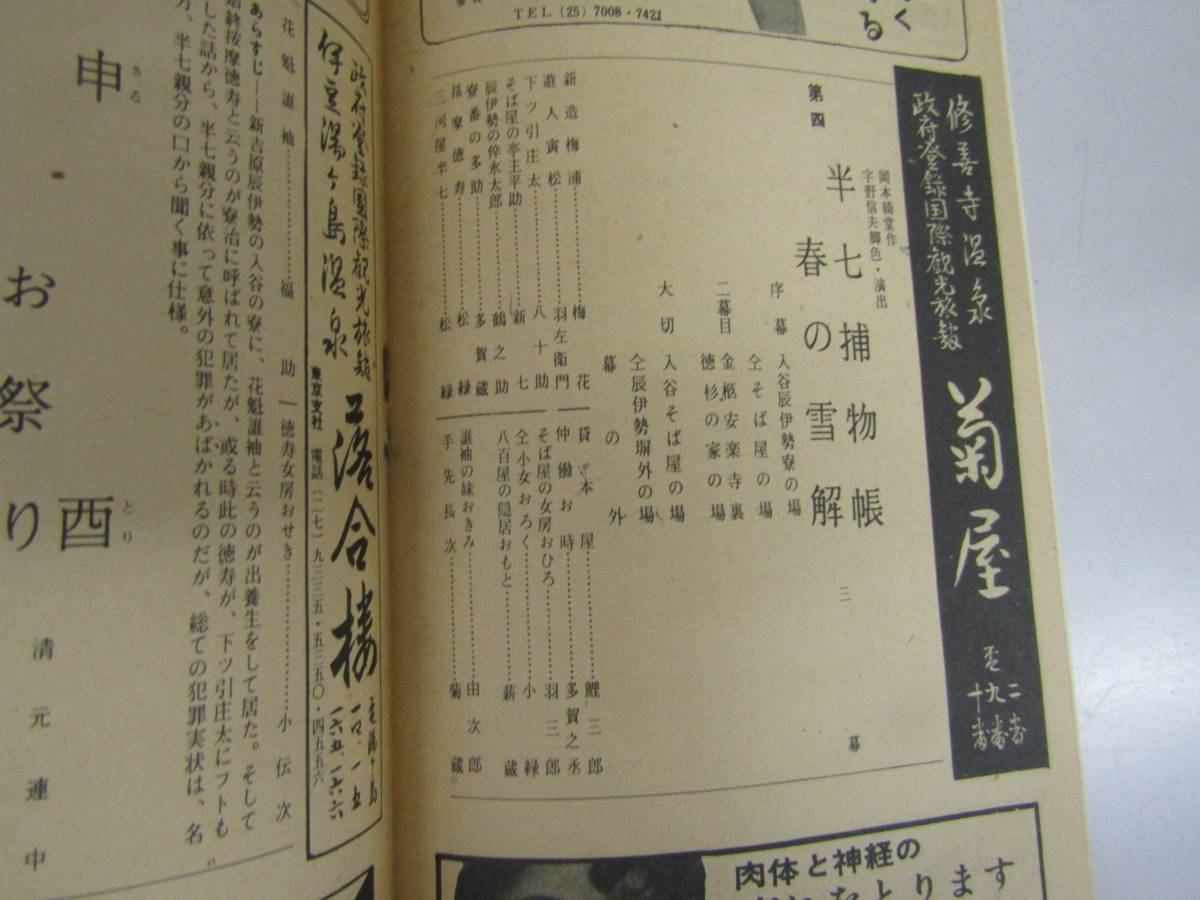 く
る
TEL (25) 7008・7421
修善寺温泉
政府登録国際観光旅館
菊屋
二番
九番
十番
第四
岡本綺堂作
宇野信夫脚色・演出
半七捕物帳
春の雪解
三幕
序幕 入谷辰伊勢寮の場
仝そば屋の場
二幕目 金杉安楽寺裏
徳杉の家の場
大切 入谷そば屋の場
仝辰伊勢塀外の場
幕の外
新造梅浦………梅花
遊人寅松………羽左衛門
下ッ引庄太………八十助
そば屋の亭主平助………新七
辰伊勢の伜永太郎………鶴之助
寮番の多助………多賀蔵
按摩徳寿………松緑
三河屋半七………松緑
貸本屋………鯉三郎
仲働お時………多賀之丞
そば屋の女房おひろ………羽三郎
仝小女おろく………小緑
八百屋の隠居おもと………薪蔵
誰袖の妹おきみ………由次郎
手先長次………菊蔵
政府登録国際観光旅館
伊豆湯ヶ島温泉
落合楼
東京支社 電話(二七)九二三五・五三五〇・四五五六
花魁誰袖………福助
徳寿女房おせき………小伝次
あらすじ――新吉原辰伊勢の入谷の寮に、花魁誰袖と云うのが出養生をして居た。そして
始終按摩徳寿と云うのが寮治に呼ばれて居たが、或る時此の徳寿が、下ッ引庄太にフトも
した話から、半七親分に依って意外の犯罪があばかれるのだが、総ての犯罪実状は、名
半七親分の口から聞く事に仕様。
申
さる
酉
とり
お祭り
清元連中
肉体と神経の
とります